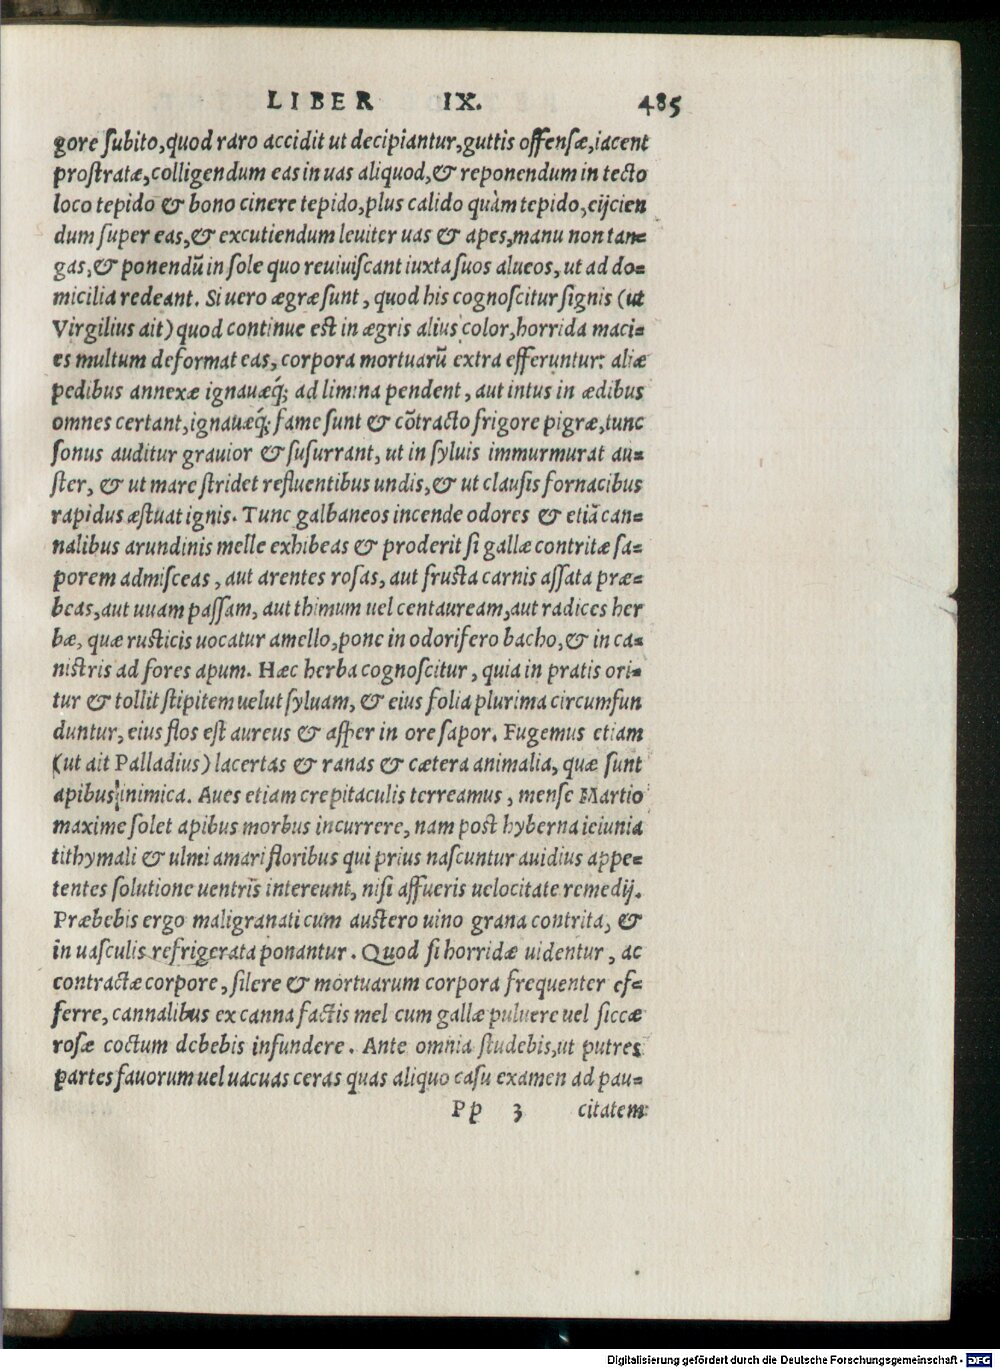 LIBER IX. 485
gore ſubito, quod raro accidit ut decipiantur, guttis offenſæ, iacent
proſtratæ, colligendum eas in uas aliquod, & reponendum in tecto
loco tepido & bono cinere tepido, plus calido quàm tepido, eijcien
dum ſuper eas, & excutiendum leuiter uas & apes, manu non tan=
gas, & ponendũ in ſole quo reuiuiſcant iuxta ſuos alueos, ut ad do=
micilia redeant. Si uero ægræ ſunt, quod his cognoſcitur ſignis (ut
Virgilius ait) quod continue eſt in ægris alius color, horrida maci=
es multum deformat eas, corpora mortuarũ extra efferuntur: aliæ
pedibus annexæ ignauæq́; ad limina pendent, aut intus in ædibus
omnes certant, ignauæq́; fame ſunt & cõtracto frigore pigræ, tunc
ſonus auditur grauior & ſuſurrant, ut in ſyluis immurmurat au=
ſter, & ut mare ſtridet refluentibus undis, & ut clauſis fornacibus
rapidus æſtuat ignis. Tunc galbaneos incende odores & etiã can=
nalibus arundinis melle exhibeas & proderit ſi gallæ contritæ ſa=
porem admiſceas, aut arentes roſas, aut fruſta carnis aſſata præ=
beas, aut uuam paſſam, aut thimum uel centauream, aut radices her
bæ, quæ ruſticis uocatur amello, pone in odorifero bacho, & in ca=
niſtris ad fores apum. Hæc herba cognoſcitur, quia in pratis ori=
tur & tollit ſtipitem uelut ſyluam, & eius folia plurima circumfun
duntur, eius flos eſt aureus & aſper in ore ſapor. Fugemus etiam
(ut ait Palladius) lacertas & ranas & cætera animalia, quæ ſunt
apibus inimica. Aues etiam crepitaculis terreamus, menſe Martio
maxime ſolet apibus morbus incurrere, nam poſt hyberna ieiunia
tithymali & ulmi amari floribus qui prius naſcuntur auidius appe=
tentes ſolutione uentris intereunt, niſi affueris uelocitate remedij.
Præbebis ergo maligranati cum auſtero uino grana contrita, &
in uaſculis refrigerata ponantur. Quod ſi horridæ uidentur, ac
contractæ corpore, ſilere & mortuarum corpora frequenter ef=
ferre, cannalibus ex canna factis mel cum gallæ puluere uel ſiccæ
roſæ coctum debebis infundere. Ante omnia ſtudebis, ut putres
partes fauorum uel uacuas ceras quas aliquo caſu examen ad pau=
Pp 3 citatem
Digitalisierung gefördert durch die Deutsche Forschungsgemeinschaft - DFG